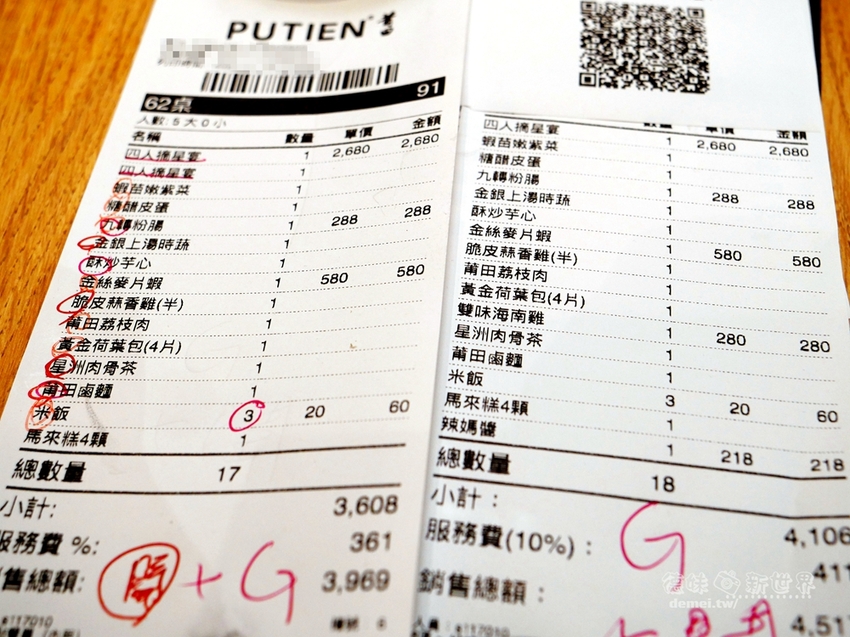 PUTIEN
91
62桌
人數:5大0小
名稱 數量 單價 金額
四人摘星宴 1 2,680 2,680
四人摘星宴 1
蝦苗嫩紫菜 1
糖醋皮蛋 1
九轉粉腸 1 288 288
金銀上湯時蔬 1
酥炒芋心 1
金絲麥片蝦 1 580 580
脆皮蒜香雞(半) 1
莆田荔枝肉 1
黃金荷葉包(4片) 1
星洲肉骨茶 1
莆田鹵麵 1
米飯 3 20 60
馬來糕4顆 1
總數量 17
小計: 3,608
服務費 %: 361
銷售總額: 3,969
+ G
e117010
四人摘星宴 1 2,680 2,680
蝦苗嫩紫菜 1
糖醋皮蛋 1
九轉粉腸 1 288 288
金銀上湯時蔬 1
酥炒芋心 1
金絲麥片蝦 1 580 580
脆皮蒜香雞(半) 1
莆田荔枝肉 1
黃金荷葉包(4片) 1
雙味海南雞 1 280 280
星洲肉骨茶 1
莆田鹵麵 1
米飯 3 20 60
馬來糕4顆 1
辣媽醬 1 218 218
總數量 18
小計: 4,106
服務費(10%): 411
銷售總額: 4,517
G
e117010
新世界
demei.tw/